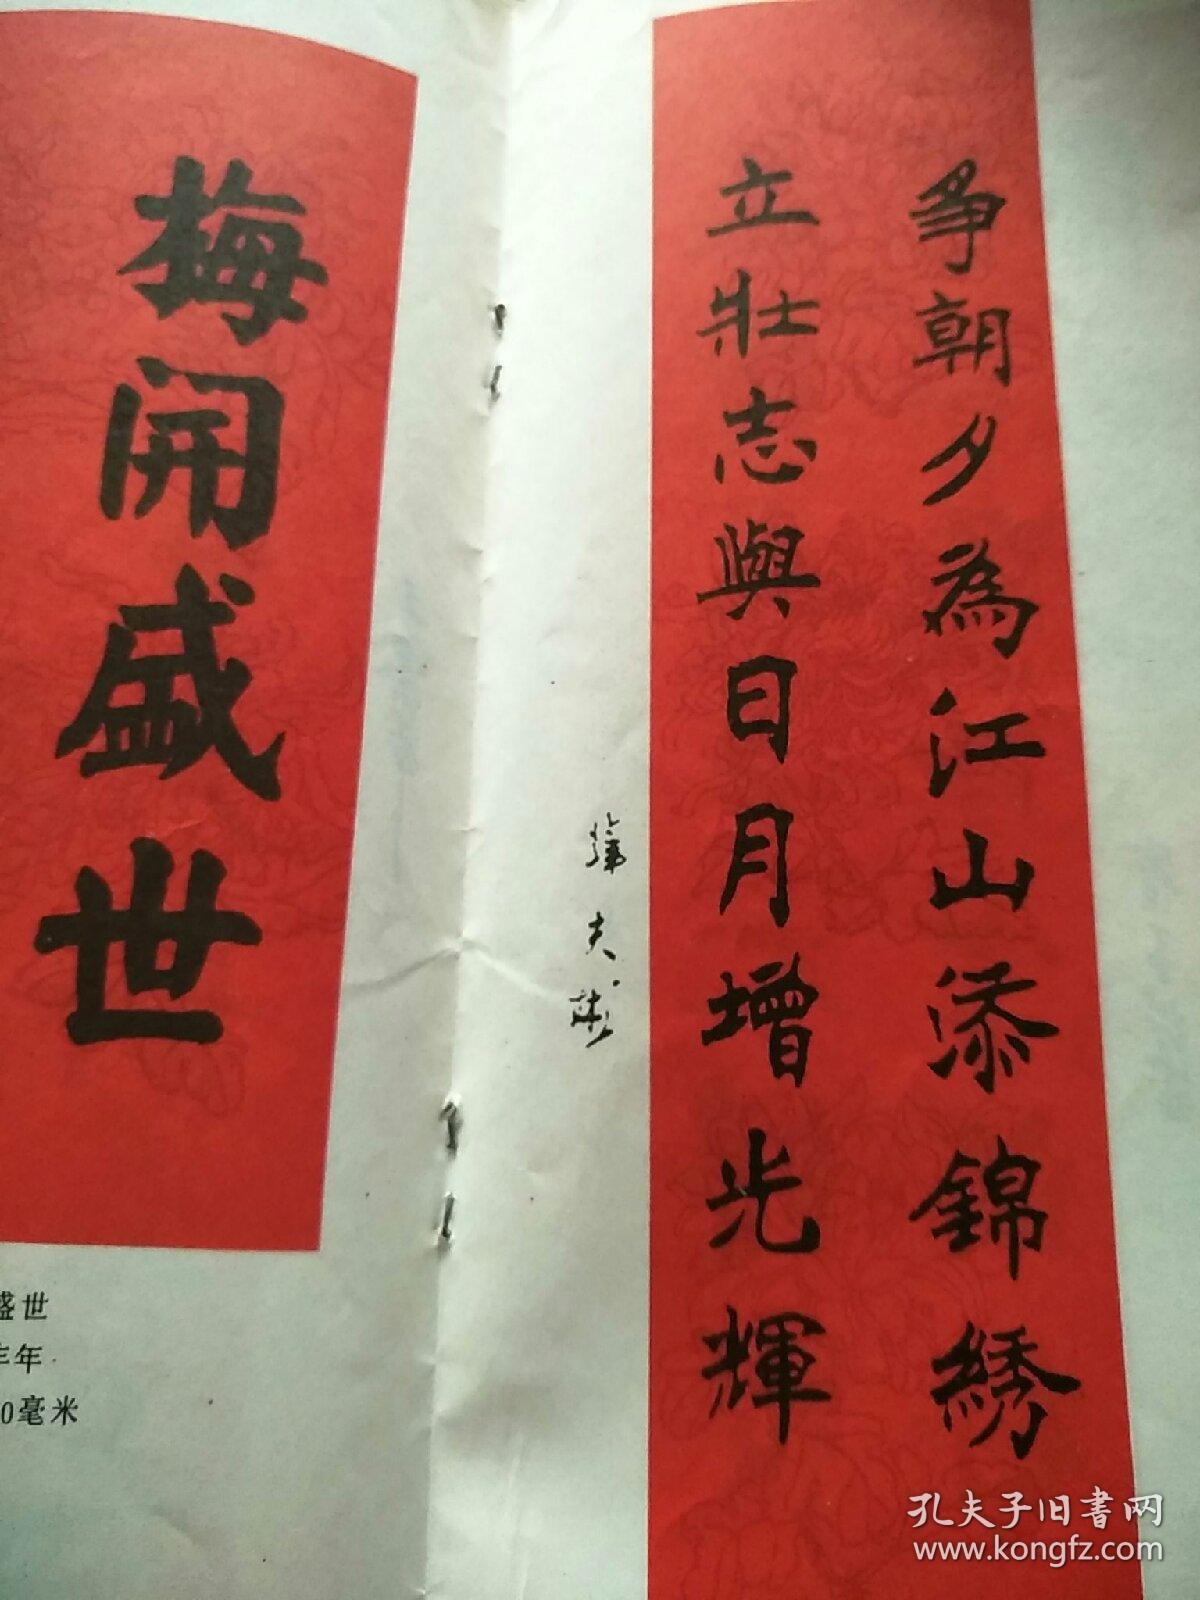 争朝夕為江山添錦綉
立壯志與日月增光輝
夫
梅開盛世
盛世
年年
0毫米
孔夫子旧書网
www.kongfz.com